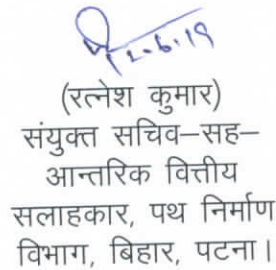 12.6.19
(रत्नेश कुमार)
संयुक्त सचिव–सह–
आन्तरिक वित्तीय
सलाहकार, पथ निर्माण
विभाग, बिहार, पटना।